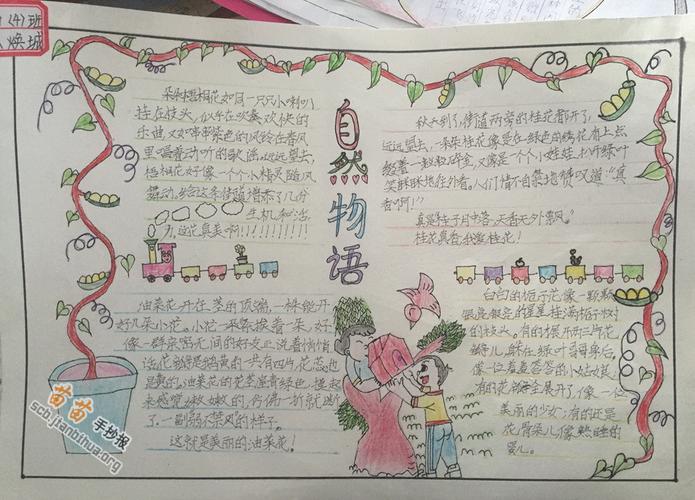 (4)班
焕城
自然物语
朵朵梧桐花如同一只只小喇叭
挂在枝头,似乎在吹奏欢快的
乐曲,又如串串紫色的风铃在春风
里唱着动听的歌谣。远远望去,
梧桐花好像一个个小精灵随风
舞动,给这条街道增添了几分
生机和活
力,这花真美啊!!!!!!!!!!
秋天到了,街道两旁的桂花都开了,
远远望去,一朵朵桂花像是在绿色的绣花布上点
缀着一粒粒碎金,又像是一个个小娃娃,扒开绿叶
笑眯眯地往外看。人们情不自禁地赞叹道:"真
香啊!"
真是桂子月中落,天香云外飘。"
桂花真香,我爱桂花!
油菜花开在茎的顶端,一株能开
好几朵小花。小花一朵紧挨着一朵,好
像一群亲密无间的好友正说着悄悄
话,花瓣是鹅黄的一共有四片,花蕊也
是黄的,油菜花的花茎是青绿色,摸起
来感觉嫩嫩的,仿佛一折就断
了,一副弱不禁风的样子。
这就是美丽的油菜花!
白白的栀子花像一颗颗
银色的星星挂满栀子树
的枝头。有的展开两三片花
瓣儿,躲在绿叶哥哥身后,
像一位羞答答的小姑娘,
有的花瓣全展开了,像一位
美丽的少女;有的还是
花骨朵儿,像熟睡的
婴儿。
苗苗手抄报
scb.jianbihua.org